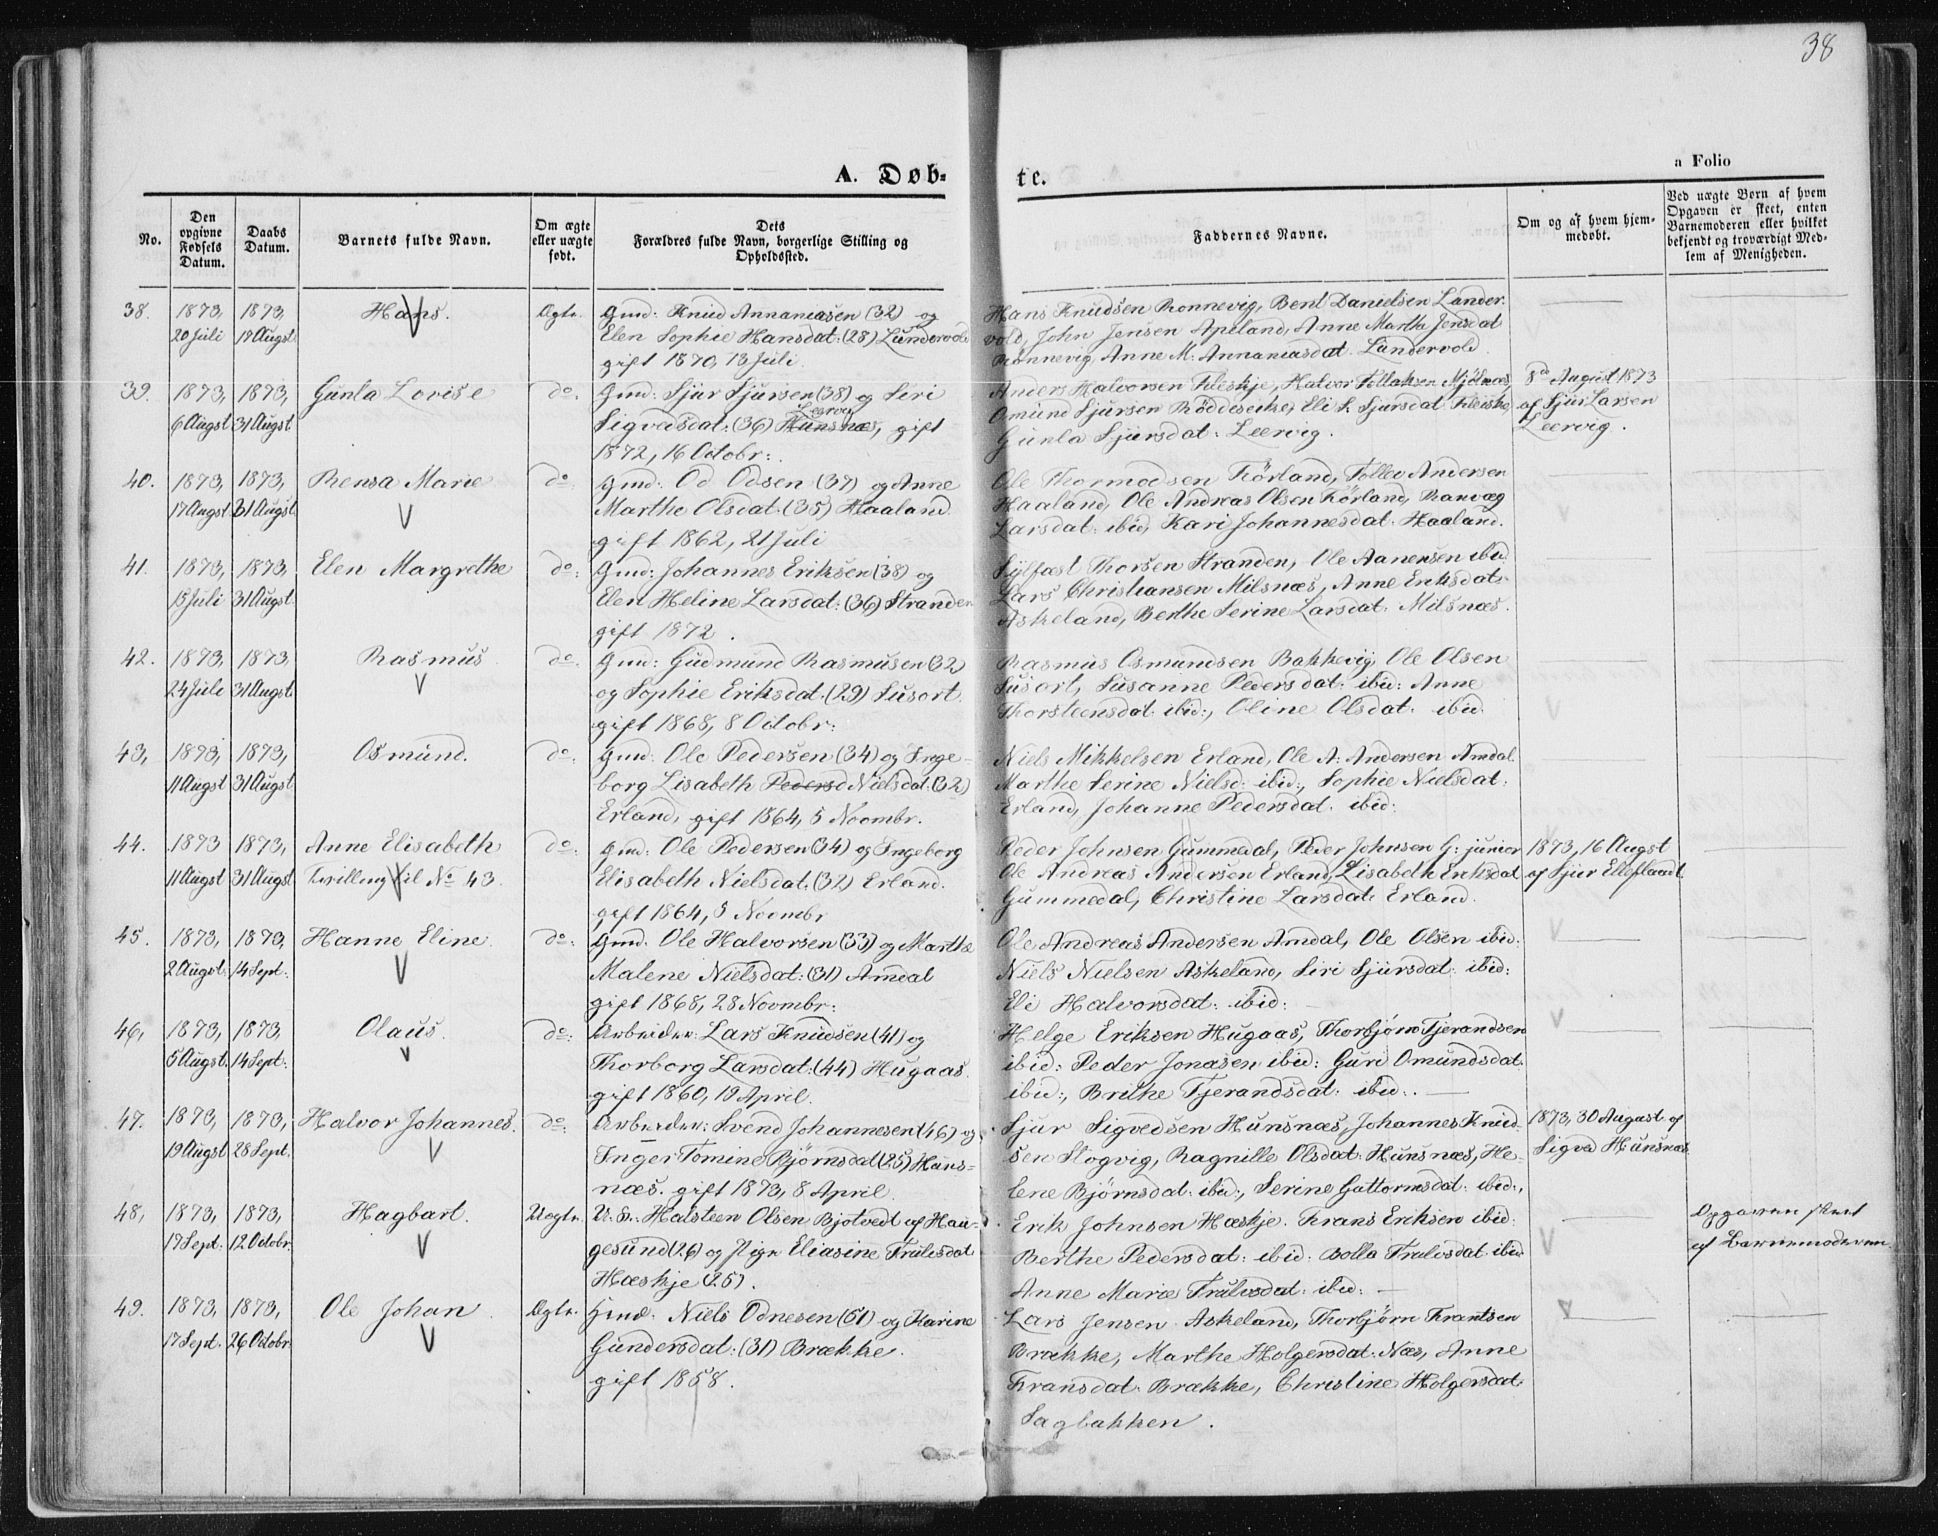 38
a Folio
A. Døb-
te.
No.
Den opgivne Fødsels Datum.
Daabs Datum.
Barnets fulde Navn.
Om ægte eller uægte født.
Dets Forældres fulde Navn, borgerlige Stilling og Opholdssted.
Faddernes Navne.
Om og af hvem hjemmedøbt.
Ved uægte Børn af hvem Opgaven er skeet, enten Barnemoderen eller hvilket bekjendt og troværdigt Medlem af Menigheden.
38. 1873, 1873 Hans. Ægte. Gmd: Knud Annaniasen (32) og
20 Juli 19 Augst Elen Sophie Hansdat: (28) Lundervold
gift 1870, 13 Juli.
Hans Knudsen Ronnevig, Bent Danielsen Lunder
vold, John Jensen Apeland, Anne Marthe Jensdat
Rönnevig, Anne M. Annaniasdat. Lundervold.
39. 1873, 1873, Gunla Lovise do. Gmd: Sjur Sjursen (38) og Siri
Leervig
6 Augst 31 Augst Sigveisdat: (36) Hunsnæs, gift
1872, 16 Octobr:.
Anders Halvorsen Fleskje, Halvor Tollaksen Mjölnæs,
Omund Sjursen Röddeseike, Eli S. Sjursdat Fleiskje
Gunla Sjursdat: Leervig.
8de August 1873
af Sjur Larsen
Leervig.
40. 1873, 1873, Rensa Marie do. Gmd: Od Odsen (37) og Anne
17 Augst 31 Augst. Marthe Olsdat. (35) Haaland.
gift 1862, 21 Juli
Ole Thormodsen Förland, Tollev Andersen
Haaland, Ole Andreas Olsen Förland, Ranvæg
Larsdat: ibid, Kari Johannesdat: Haaland.
41. 1873, 1873, Elen Margrethe do: Gmd: Johannes Eriksen (38) og
15 Juli 31 Augst. Elen Heline Larsdat: (36) Stranden
gift 1872.
Sylfæst Thorsen Stranden, Ole Aanensen ibid
Lars Christiansen Milsnæs, Anne Eriksdat:
Askeland, Berthe Serine Larsdat: Milsnæs.
42. 1873, 1873, Rasmus do: Gmd: Gudmund Rasmusen (32)
24 Juli 31 Augst. og Sophie Eriksdat. (29) Susort.
gift 1868, 8 Octobr:
Rasmus Osmundsen Bakkevig, Ole Olsen
Susort, Susanne Pedersdat: ibid: Anne
Thorsteensdat: ibid:, Oline Olsdat: ibid.
43, 1873, 1873, Osmund. do: Gmd: Ole Pedersen (34) og Inge-
11 Augst 31 Augst. borg Lisabeth Pedersd Nielsdat: (32)
Erland, gift 1864, 5 Novmbr.
Niels Mikkelsen Erland, Ole A. Andersen Amdal
Marthe Serine Nielsd: ibid:, Sophie Nielsdat:
Erland, Johanne Pedersdat: ibid:
44. 1873 1873, Anne Elisabeth do: Gmd: Ole Pedersen (34) og Ingeborg
11 Augst 31 Augst Tvilling til No 43. Elisabeth Nielsdat. (32) Erland.
gift 1864, 5 Novmbr
Peder Johnsen Gummedal, Peder Johnsen G: junior
Ole Andreas Andersen Erland, Lisabeth Eriksdat
Gummedal, Christine Larsdat: Erland.
1873, 16 Augst
af Sjur Ellefland
45. 1873, 1873, Hanne Eline. do: Gmd. Ole Halvorsen (33) og Marthe
2 Augst. 14 Sept: Malene Nielsdat: (31) Amdal
gift 1868, 28 Novmbr:
Ole Andreas Andersen Amdal, Ole Olsen ibid:
Niels Nielsen Askeland, Siri Sjursdat: ibid:
Eli Halvorsdat: ibid:
46, 1873, 1873, Olaus. do: Arbeider: Lars Knudsen (41) og
5 Augst. 14 Sept: Thorborg Larsdat: (44) Hugaas.
gift 1860, 19 April.
Helge Eriksen Hugaas, Thorbjørn Tjerandsen
ibid: Peder Jonasen ibid: Guri Omundsdat.
ibid:, Brithe Tjerandsdat: ibid:.
47. 1873, 1873, Halvor Johannes. do: Arbeider: Svend Johannesen (46) og
19 Augst 28 Sept. Inger Tomine Bjørnsdat (25) Huns-
næs. gift 1873, 8 April.
Sjur Sigvedsen Hunsnæs, Johannes Knud-
sen Stogvig, Ragnille Olsdat: Hunsnæs, He-
lene Bjørnsdat: ibid:, Serine Guttormsdat: ibid:,
1873, 30 August af
Sigved Hunsnæs
48, 1873, 1873, Hagbart. Uægte. U. K.: Halsteen Olsen Bjotvedt af Hau-
17 Sept. 12 Octobr. gesund (26) og Pige Eliasine Trulsdat
Hæskje (25).
Erik Johnsen Hæskje. Frans Eriksen ibid:
Berthe Pedersdat: ibid: Bolla Trulsdat ibid
Anne Marie Trulsdat: ibid:
Opgaven skeet
af Barnemoderen
49. 1873, 1873, Ole Johan. Ægte. Hmd: Niels Odnesen (51) og Karine
17 Sept. 26 Octobr Gundersdat: (31) Brække.
gift 1858.
Lars Jensen Askeland, Thorbjørn Frantsen
Brække, Marthe Holgersdat: Næs, Anne
Fransdat: Brække, Christine Holgersdat:
Sagbakken.